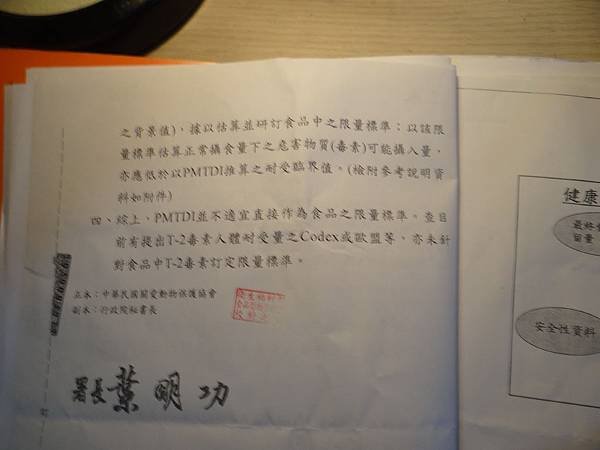 之背景值)，據以估算並研訂食品中之限量標準；以該限
量標準估算正常攝食量下之危害物質(毒素)可能攝入量，
亦應低於以PMTDI推算之耐受臨界值。(檢附參考說明資
料如附件)
四、綜上，PMTDI並不適宜直接作為食品之限量標準。查目
前有提出T-2毒素人體耐受量之Codex或歐盟等，亦未針
對食品中T-2毒素訂定限量標準。
正本：中華民國關愛動物保護協會
副本：行政院秘書長
署長葉明功
健康
最終
留量
安全性資料